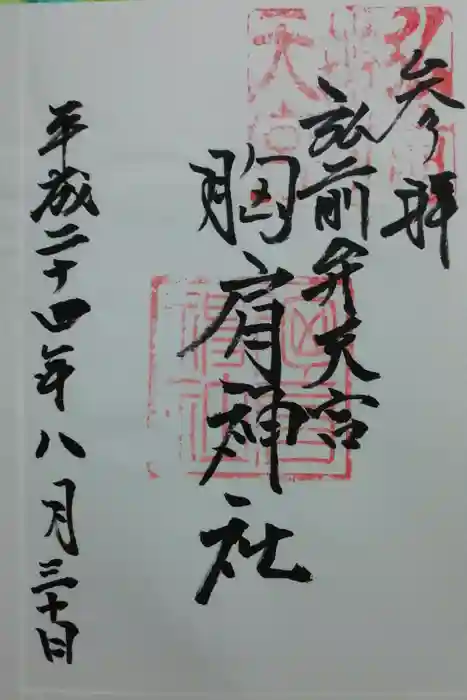 参拝
弘前弁天宮
胸肩神社
平成二十四年八月三十日